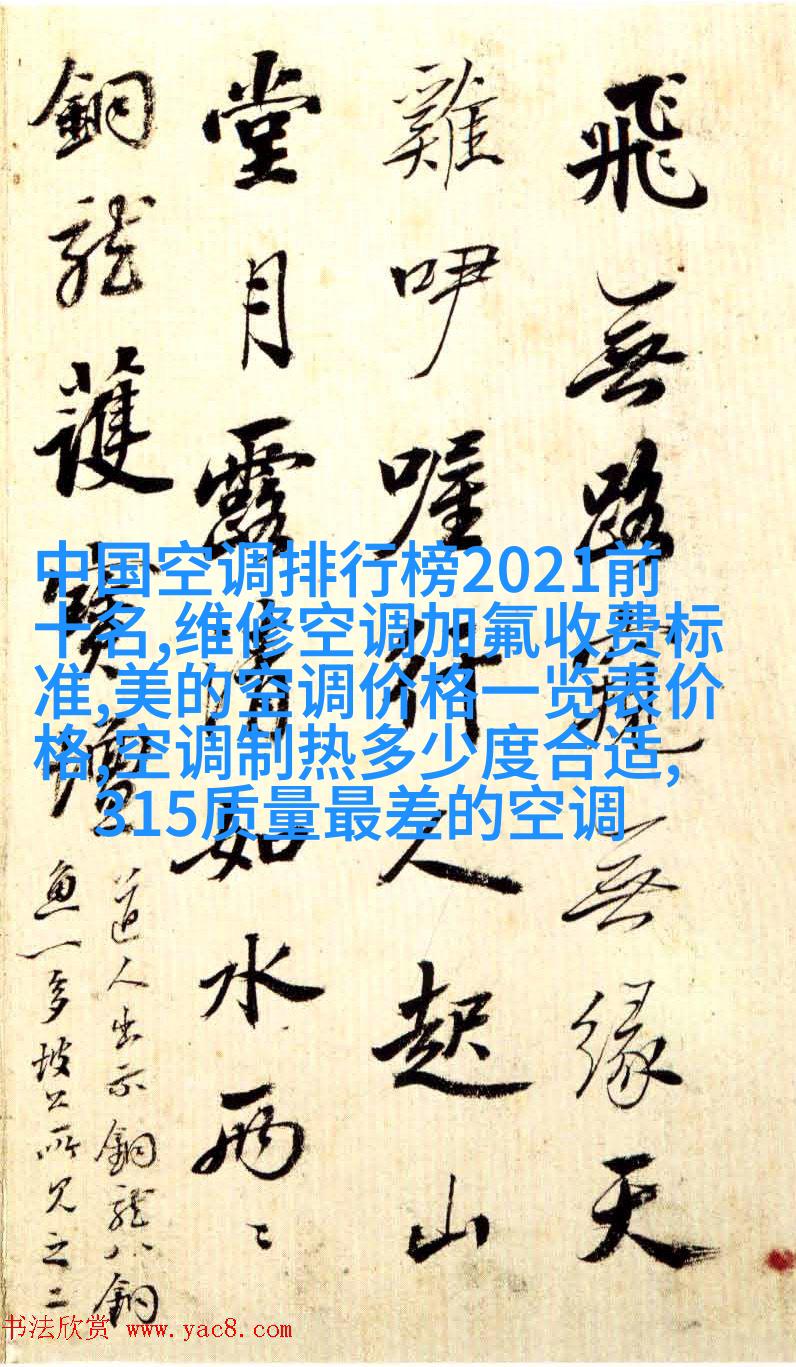 飛無路窺無緣天
雞咿喔行人起山
堂月露如水兩〻
銅龍護寶壇
道人出示銅龍八銅
魚一坡公所見之二
中国空调排行榜2021前
十名,维修空调加氟收费标
准,美的空调价格一览表价
格,空调制热多少度合适,
315质量最差的空调
书法欣赏 www.yac8.com